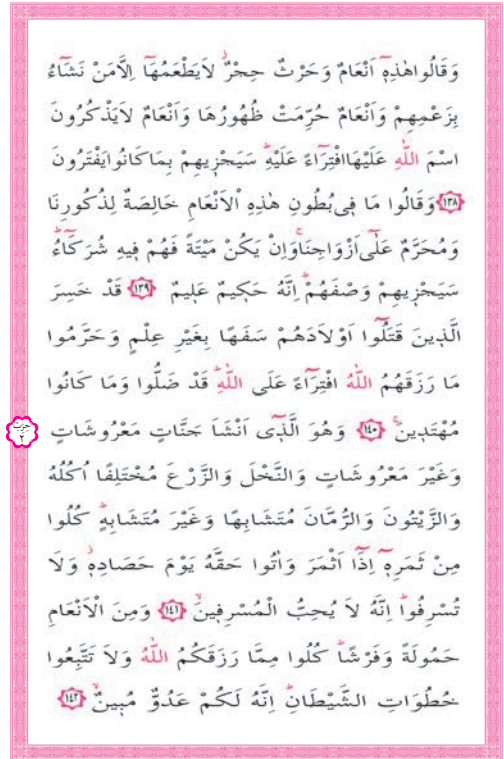 وَقَالُوا هٰذِهِٓ اَنْعَامٌ وَحَرْثٌ حِجْرٌۘ لَا يَطْعَمُهَٓا اِلَّا مَنْ نَشَٓاءُ
بِزَعْمِهِمْ وَاَنْعَامٌ حُرِّمَتْ ظُهُورُهَا وَاَنْعَامٌ لَا يَذْكُرُونَ
اسْمَ اللّٰهِ عَلَيْهَا افْتِرَٓاءً عَلَيْهِۜ سَيَجْزٖيهِمْ بِمَا كَانُوا يَفْتَرُونَ
﴿١٣٨﴾ وَقَالُوا مَا فٖى بُطُونِ هٰذِهِ الْاَنْعَامِ خَالِصَةٌ لِذُكُورِنَا
وَمُحَرَّمٌ عَلٰٓى اَزْوَاجِنَاۚ وَاِنْ يَكُنْ مَيْتَةً فَهُمْ فٖيهِ شُرَكَٓاءُۜ
سَيَجْزٖيهِمْ وَصْفَهُمْۜ اِنَّهُ حَكٖيمٌ عَلٖيمٌ ﴿١٣٩﴾ قَدْ خَسِرَ
الَّذٖينَ قَتَلُٓوا اَوْلَادَهُمْ سَفَهًا بِغَيْرِ عِلْمٍ وَحَرَّمُوا
مَا رَزَقَهُمُ اللّٰهُ افْتِرَٓاءً عَلَى اللّٰهِۜ قَدْ ضَلُّوا وَمَا كَانُوا
مُهْتَدٖينَۚ ﴿١٤٠﴾ وَهُوَ الَّذٖٓى اَنْشَاَ جَنَّاتٍ مَعْرُوشَاتٍ
وَغَيْرَ مَعْرُوشَاتٍ وَالنَّخْلَ وَالزَّرْعَ مُخْتَلِفًا اُكُلُهُ
وَالزَّيْتُونَ وَالرُّمَّانَ مُتَشَابِهًا وَغَيْرَ مُتَشَابِهٍۜ كُلُوا
مِنْ ثَمَرِهٖٓ اِذَٓا اَثْمَرَ وَاٰتُوا حَقَّهُ يَوْمَ حَصَادِهٖۘ وَلَا
تُسْرِفُواۜ اِنَّهُ لَا يُحِبُّ الْمُسْرِفٖينَۙ ﴿١٤١﴾ وَمِنَ الْاَنْعَامِ
حَمُولَةً وَفَرْشًاۜ كُلُوا مِمَّا رَزَقَكُمُ اللّٰهُ وَلَا تَتَّبِعُوا
خُطُوَاتِ الشَّيْطَانِۜ اِنَّهُ لَكُمْ عَدُوٌّ مُبٖينٌۙ ﴿١٤٢﴾